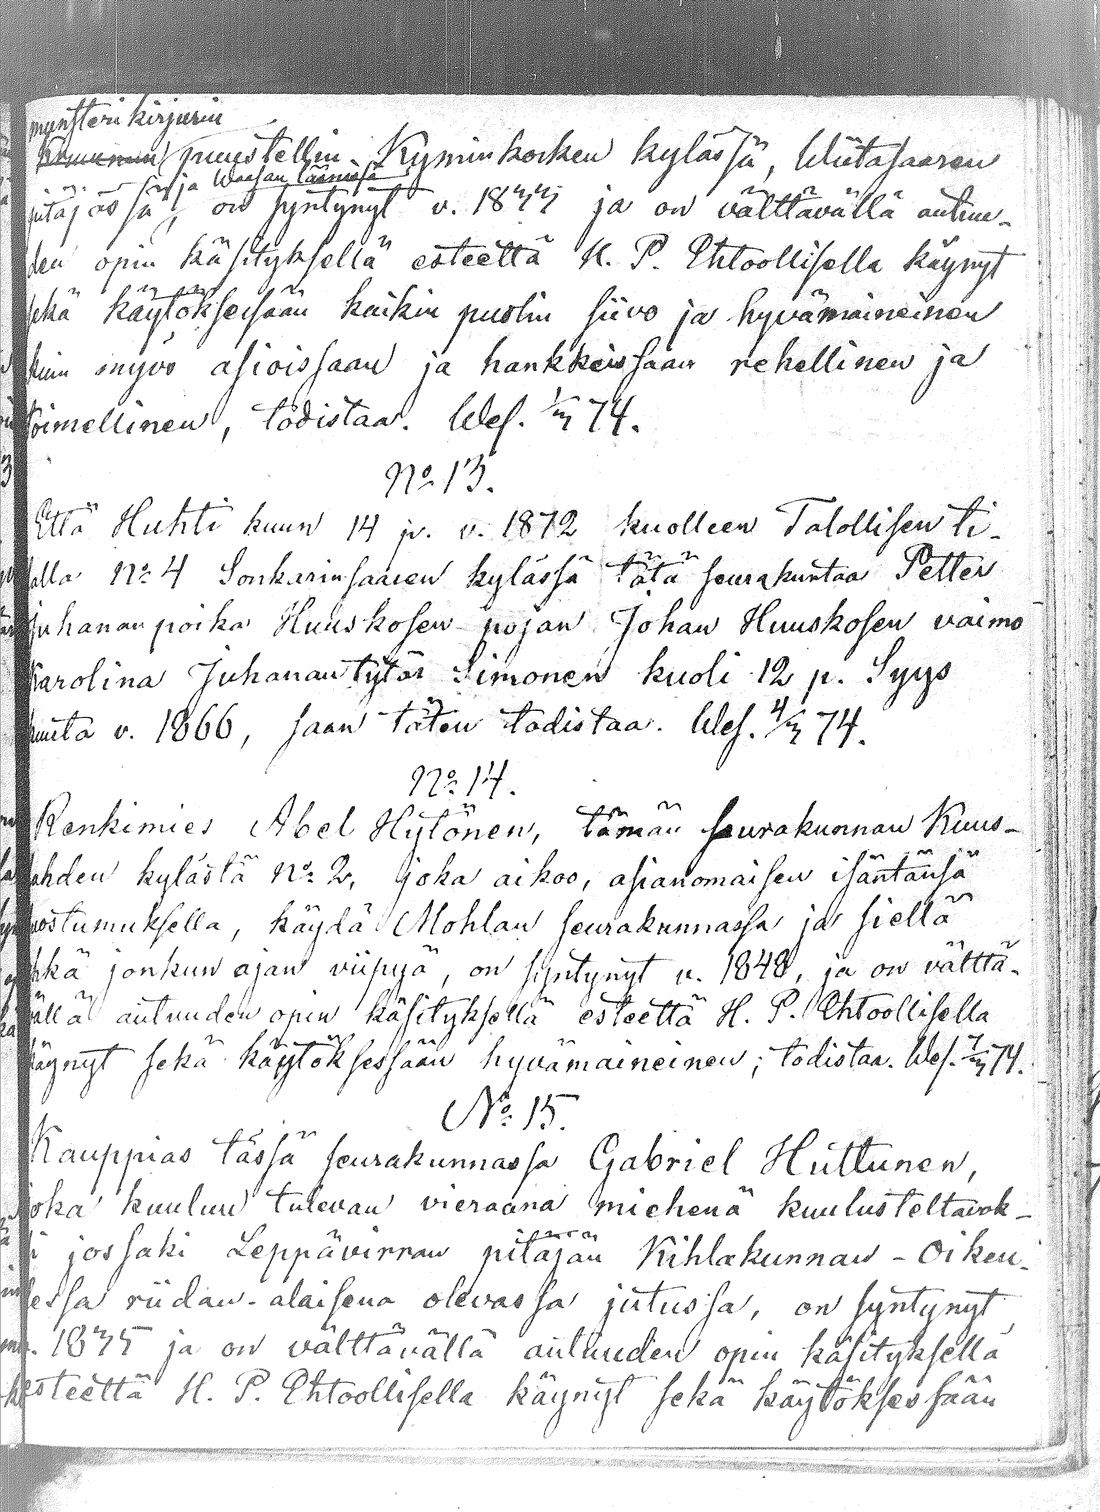 munsteri kirjurin
Kruunun puustellin Kyminkosken kylässä, Wiitasaaren
pitäjässä, ja Waasan läänissä on syntynyt v. 1844 ja on välttävällä autuu-
den opin käsityksellä esteettä H. P. Ehtoollisella käynyt
sekä käytöksessään kaikin puolin siivo ja hyvämaineinen
kuin myös asioissaan ja hankkeissaan rehellinen ja
toimellinen, todistaa. Wes. 74.
No 13.
Että Huhti kuun 14 p. v. 1872 kuolleen Talollisen ti-
lalla No 4 Sonkarinsaaren kylässä tätä seurakuntaa Petter
Juhananpoika Huuskosen pojan Johan Huuskosen vaimo
Karolina Juhanantytär Simonen kuoli 12 p. Syys
kuuta v. 1866, saan täten todistaa. Wes. 74.
No 14.
Renkimies Abel Hytönen, tämän seurakunnan Kuus-
lahden kylästä No 2, joka aikoo, asianomaisen isäntänsä
suostumuksella, käydä Mohlan seurakunnassa ja siellä
ehkä jonkun ajan viipyä, on syntynyt v. 1848, ja on välttä-
vällä autuuden opin käsityksellä esteettä H. P. Ehtoollisella
käynyt sekä käytöksessään hyvämaineinen; todistaa. Wes. 74.
No 15.
Kauppias tässä seurakunnassa Gabriel Huttunen,
joka kuuluu tulevan vieraana miehenä kuulusteltavak-
si jossaki Leppävirran pitäjän Kihlakunnan-Oikeu-
dessa riidan-alaisena olevassa jutussa, on syntynyt
v. 1845 ja on välttävällä autuuden opin käsityksellä
esteettä H. P. Ehtoollisella käynyt sekä käytöksessään